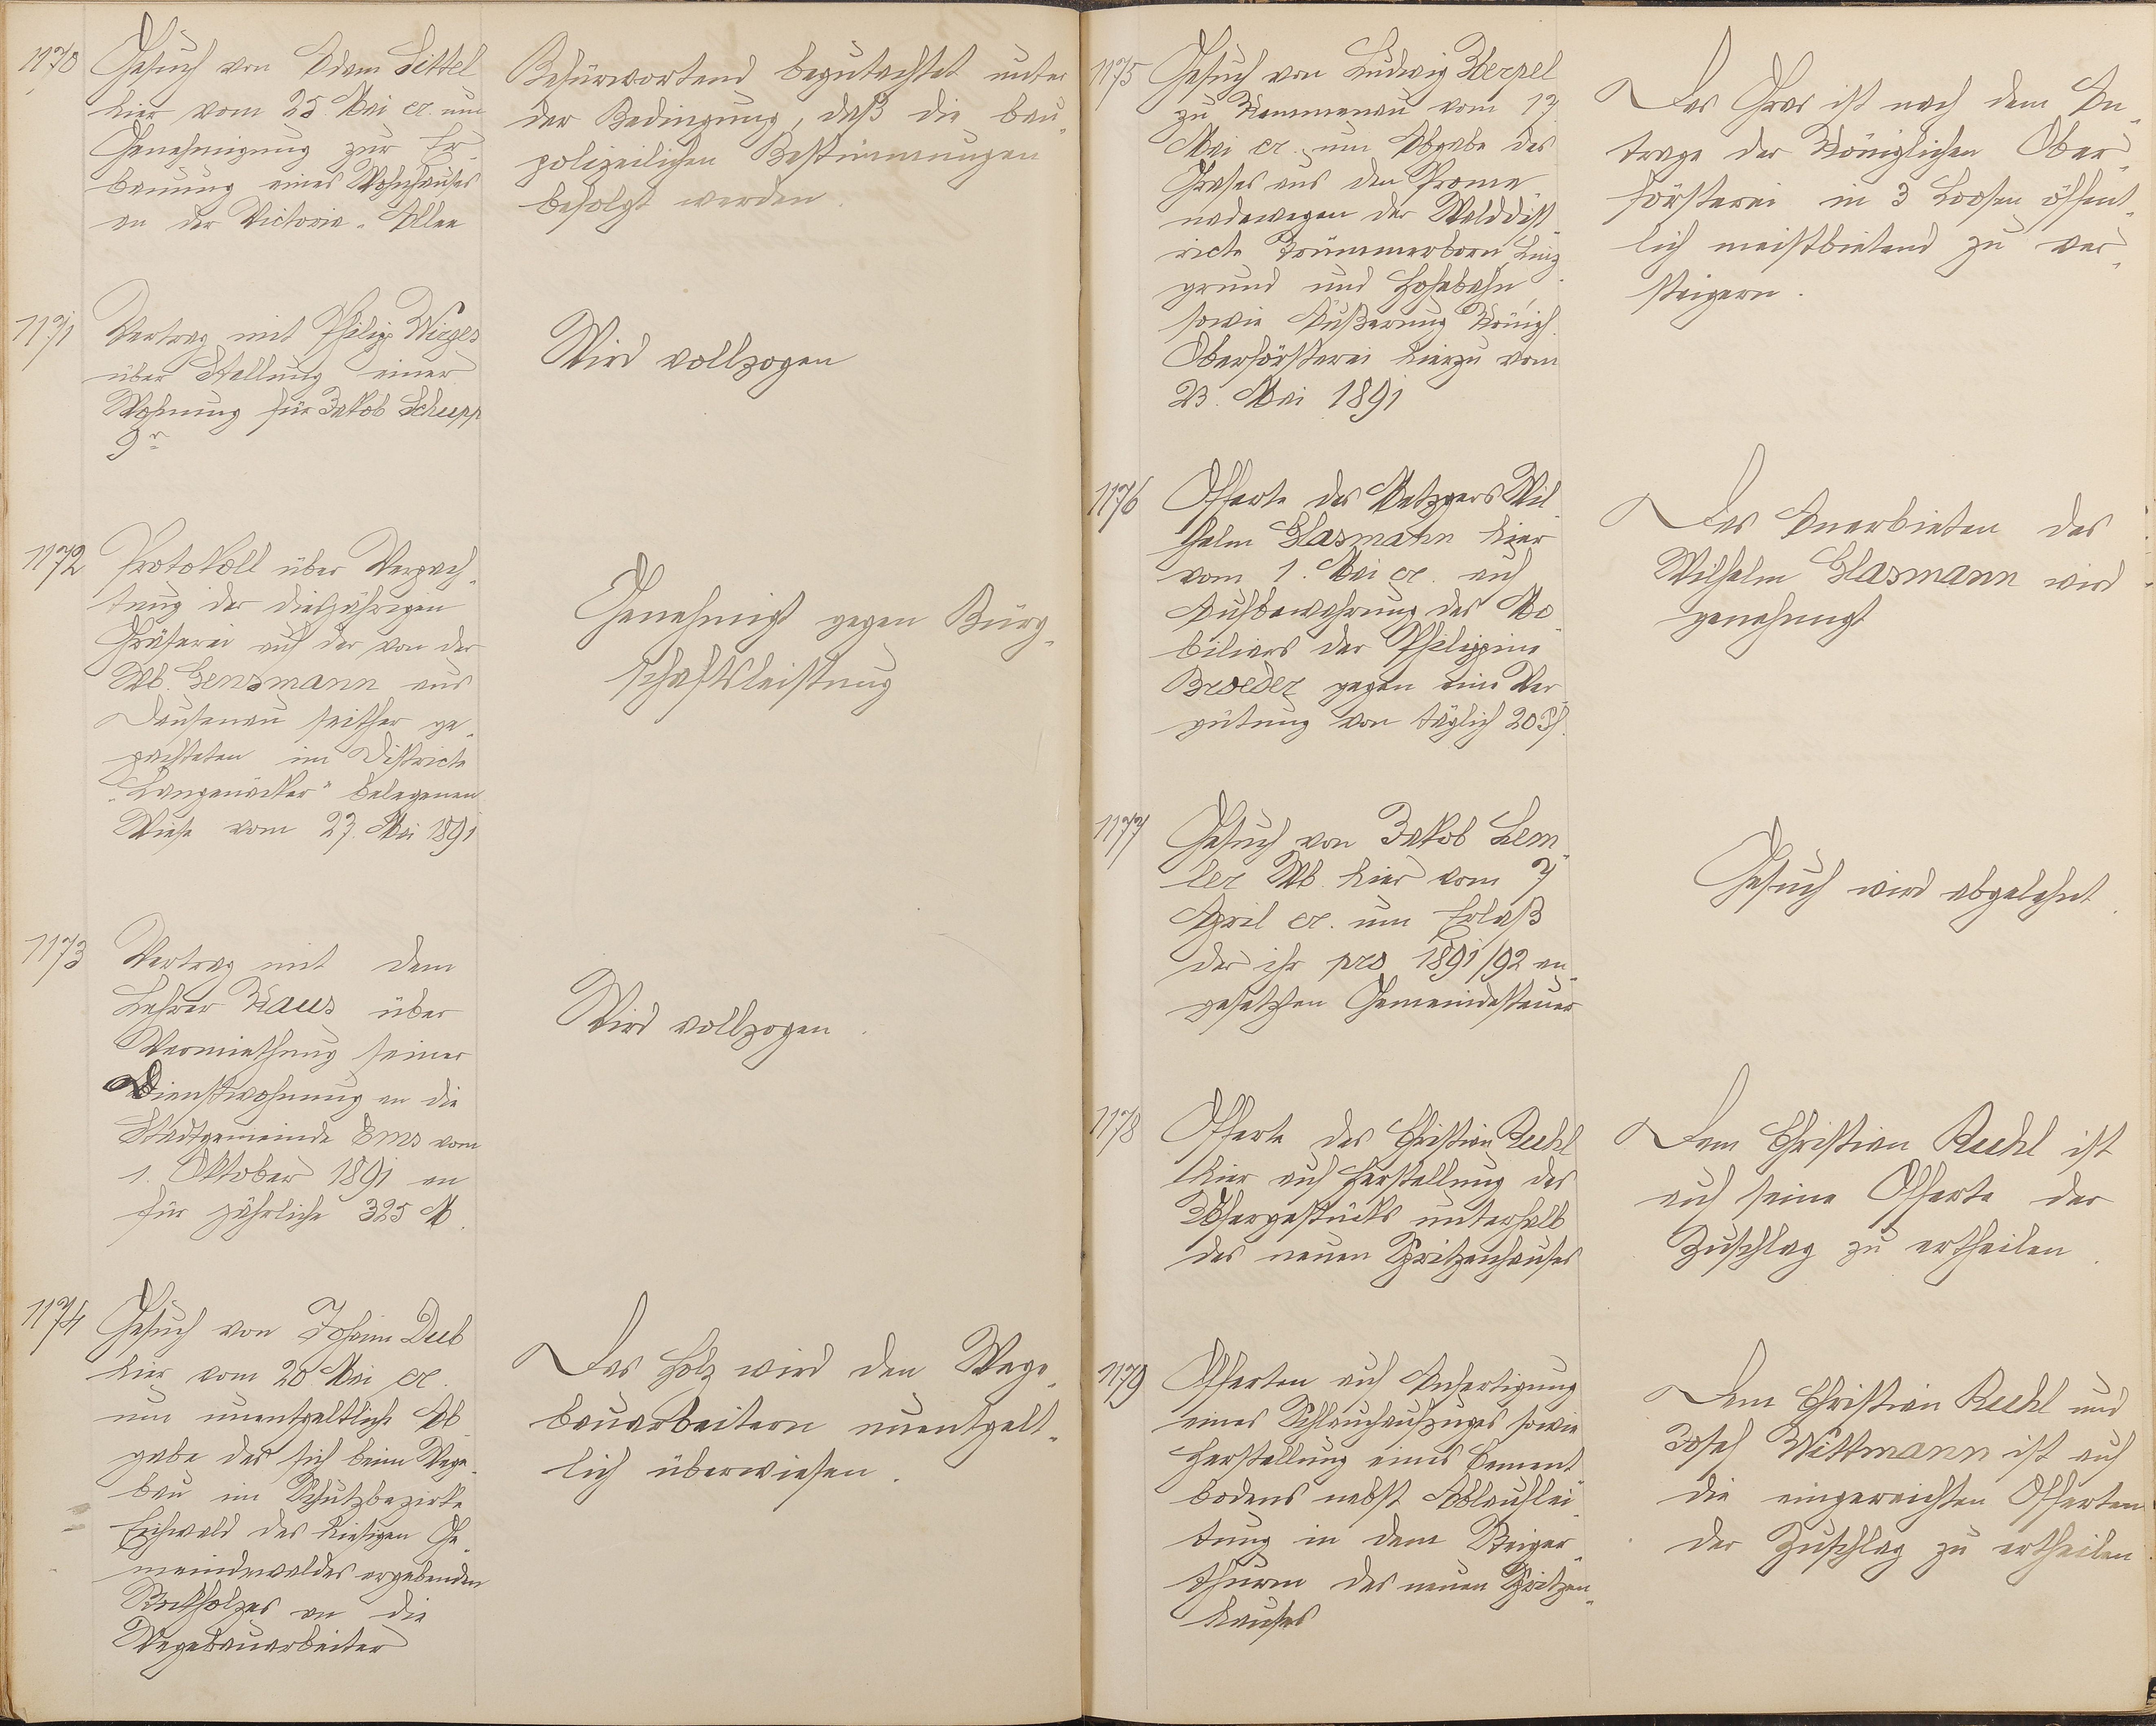 1170
Gesuch von Adam Sittel
hier vom 25. Mai cr. um
Genehmigung zur Er-
bauung eines Wohnhauses
an der Victoria-Allee
Befürwortend begutachtet unter
der Bedingung, daß die bau-
polizeilichen Bestimmungen
befolgt werden.
1171
Vertrag mit Philipp Wirges
über Stellung einer
Wohnung für Jakob Schupp
9r
Wird vollzogen
1172
Protokoll über Verpach-
tung der diesjährigen
Gräserei auf der von der
Wb. Gensmann aus
Dausenau seither ge-
pachteten im Districte
"Langenäcker" belegenen
Wiese vom 27. Mai 1891
Genehmigt gegen Bürg-
schaftsleistung
1173
Vertrag mit dem
Lehrer Klaus über
Vermiethung seiner
Dienstwohnung an die
Stadtgemeinde Ems vom
1. Oktober 1891 an
für jährliche 325 M.
Wird vollzogen.
1174
Gesuch von Johann Deeb
hier vom 20 Mai cr.
um unentgeltliche Ab-
gabe des sich beim Wege-
bau im Schutzbezirke
Eichwald des hiesigen Ge-
meindewaldes ergebenden
Stockholzes an die
Wegebauarbeiter
Das Holz wird den Wege-
bauarbeitern unentgelt-
lich überwiesen.
1175
Gesuch von Ludwig
zu Kemmenau vom 17.
Mai cr. um Abgabe des
Grases aus den Prome-
nadewegen der Walddist-
ricte Trümmerborn,
grund und Hohebahn
sowie Äußerung Königl.
Oberförsterei hierzu vom
23. Mai 1891
Das Gras ist nach dem An-
trage der Königlichen Ober-
försterei in 3 Loosen öffent-
lich meistbietend zu ver-
steigern.
1176
Offerte des Metzgers Wil-
helm Glasmann hier
vom 1. Mai cr. auf
Aufbewahrung des Mo-
biliars der Philippine
Broeder gegen eine Ver-
gütung von täglich 20 Pf.
Das Anerbieten des
Wilhelm Glasmann wird
genehmigt
1177
Gesuch von Jakob Lem-
ler Wb. hier vom 7
April cr. um Erlaß
der ihr pro 1891/92 an-
gesetzten Gemeindesteuer
Gesuch wird abgelehnt.
1178
Offerte des Christian Reehl
hier auf Herstellung des
unterhalb
des neuen Spritzenhauses
Dem Christian Reehl ist
auf seine Offerte der
Zuschlag zu ertheilen.
1179
Offerten auf Anfertigung
eines Schlauchaufzuges sowie
Herstellung eines Cement-
bodens nebst Ablauflei-
tung in dem Steiger-
thurm des neuen Spritzen-
hauses
Dem Christian Reehl und
Josef Wittmann ist auf
die eingereichten Offerten
der Zuschlag zu ertheilen